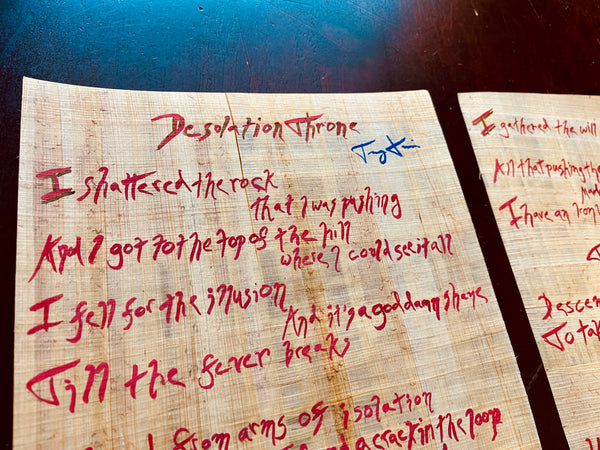 Desolation Throne
I shattered the rock
that I was pushing
And I got to the top of the hill
where I could see it all
I fell for the illusion
And it's a goddamn shame
Till the fever breaks
from arms of isolation
a crack in the loop
I gathered the
All that pushing the
I have an iron